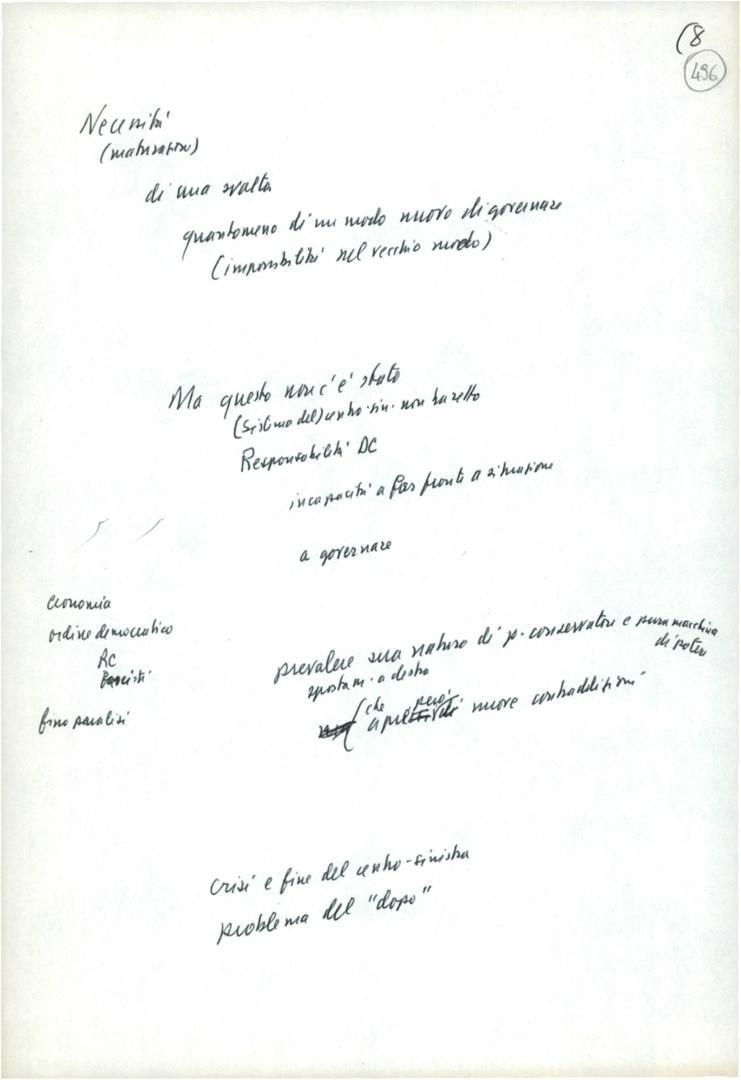 (8
496
Necessità
(maturazione)
di una svolta
quantomeno di un modo nuovo di governare
(impossibilità nel vecchio modo)
Ma questo non c'è stato
(Sistema del) centro-sin. non ha retto
Responsabilità DC
incapacità a far fronte a situazione
a governare
economia
ordine democratico
RC
Fascisti
fino paralisi
prevalere sua natura di p. conservatore e pura macchina
di potere
spostam. a destra
(che però
apre nuove contraddizioni
Crisi e fine del centro-sinistra
problema del "dopo"